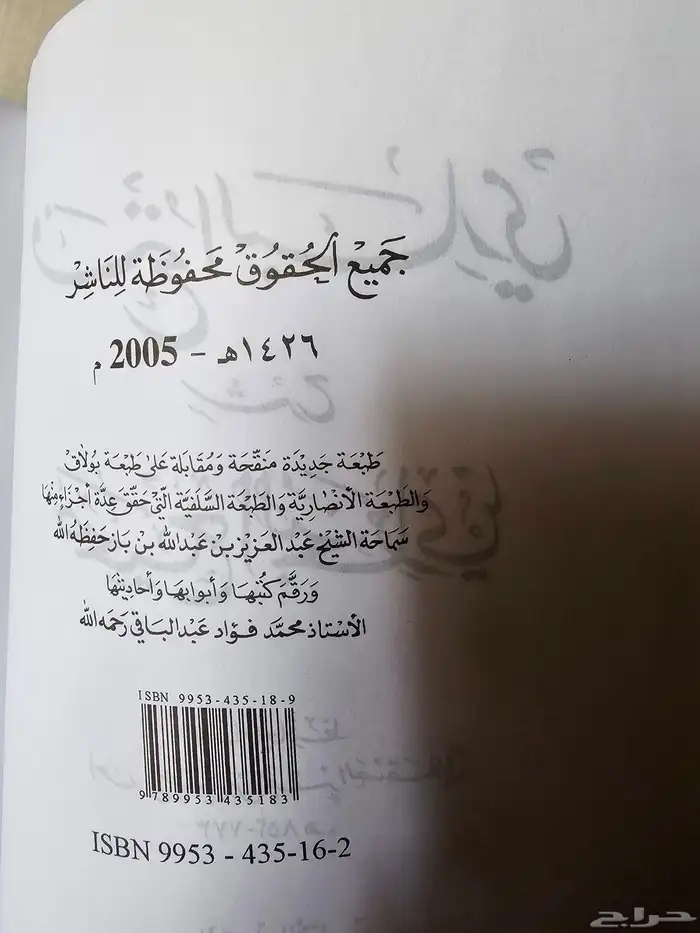 جَمِيعُ الحُقوُقِ مَحَفُوظَة لِلنَاشِرْ
١٤٢٦هـ - 2005 م
طَبْعَة جَدِيدَة مُنَقّحَة وَمُقَابلَة عَلى طَبْعَة بُولاَق
وَالطَبْعَة الأنْصَاريَّة وَالطَبعَة السَّلَفيَّة الَّتِي حَقّقَ عِدَّة أجْزاءٍ مِنْهَا
سَمَاحَة الشَّيْخ عَبْد العَزيز بن عَبدالله بن بَاز حَفِظَهُ الله
وَرَقَّم كُتبَهَا وَأبوابهَا وَأحَاديثهَا
الأسْتاذ محمَّد فؤاد عَبْد البَاقي رَحمَه الله
ISBN 9953-435-18-9
9 789953 435183
ISBN 9953 - 435-16-2
حراج